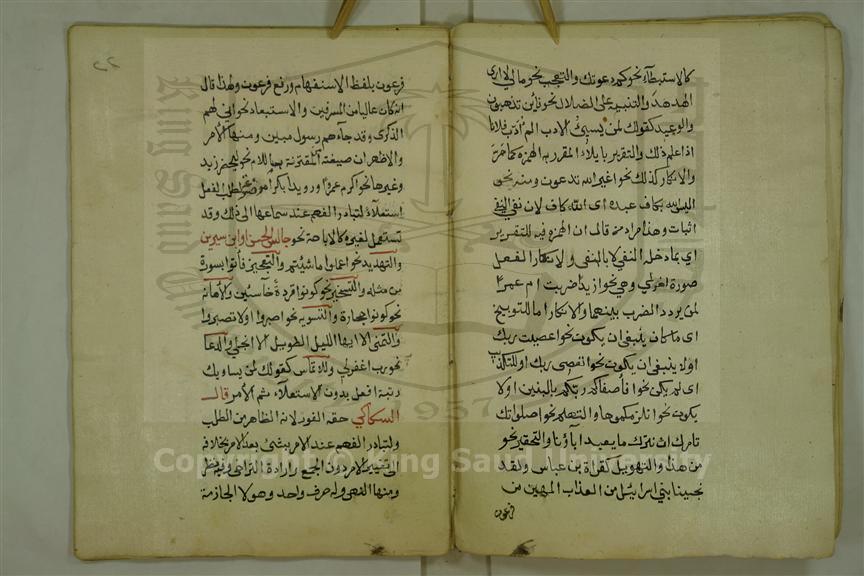 كالاستبطاء نحو كم دعوتك والتعجب نحو مالي لا ارى
الهدهد والتنبيه على الضلال نحو فاين تذهبون
والوعيد كقولك لمن يسيئ الادب الم اؤدب فلانا
اذا علم ذلك والتقرير بايلاء المقرر به الهمزة كما مر
والانكار كذلك نحو اغير الله تدعون ومنه نحو
اليس الله بكاف عبده اى الله كاف لان نفي النفي
اثبات وهذا مراد من قال ان الهمزة فيه للتقرير
اي بما دخله النفي لا بالنفي ولانكار الفعل
صورة اخرى وهي نحو ازيدا ضربت ام عمرا
لمن يردد الضرب بينهما والانكار اما للتوبيخ
اى ما كان ينبغي ان يكون نحو اعصيت ربك
او لا ينبغي ان يكون نحو اتعصى ربك او للتكذيب
اى لم يكن نحو افأصفاكم ربكم بالبنين او لا
يكون نحو انلزمكموها والتهكم نحو اصلواتك
تامرك ان نترك ما يعبد اباؤنا والتحقير نحو
من هذا والتهويل كقراءة بن عباس ولقد
نجينا بني اسرائيل من العذاب المهين من
فرعون
٢٢
فرعون بلفظ الاستفهام ورفع فرعون ولهذا قال
انه كان عاليا من المسرفين والاستبعاد نحو انى لهم
الذكرى وقد جاءهم رسول مبين ومنها الامر
والاظهر ان صيغته المقترنة باللام نحو ليحضر زيد
وغيرها نحو اكرم عمرا ورويدا بكرا موضوعة لطلب الفعل
استعلاء لتبادر الفهم عند سماعها الى ذلك وقد
تستعمل لغيره كالاباحة نحو جالس الحسن او ابن سيرين
والتهديد نحو اعملوا ما شيئتم والتعجيز فأتوا بسورة
من مثله والتسخير نحو كونوا قردة خاسئين والاهانة
نحو كونوا حجارة والتسوية نحو اصبروا او لا تصبروا
والتمني الا ايها الليل الطويل الا انجلي والدعا
نحو رب اغفر لي وللالتماس كقولك لمن يساويك
رتبة افعل بدون الاستعلاء ثم الامر قال
السكاكي حقه الفور لانه الظاهر من الطلب
ولتبادر الفهم عند الامر بشئ بعد الامر بخلافه
الى تغيير الامر دون الجمع وارادة التراخي وفيه نظر
ومنها النهي وله حرف واحد وهو لا الجازمة
Copyright © King Saud University
King Saud
1957